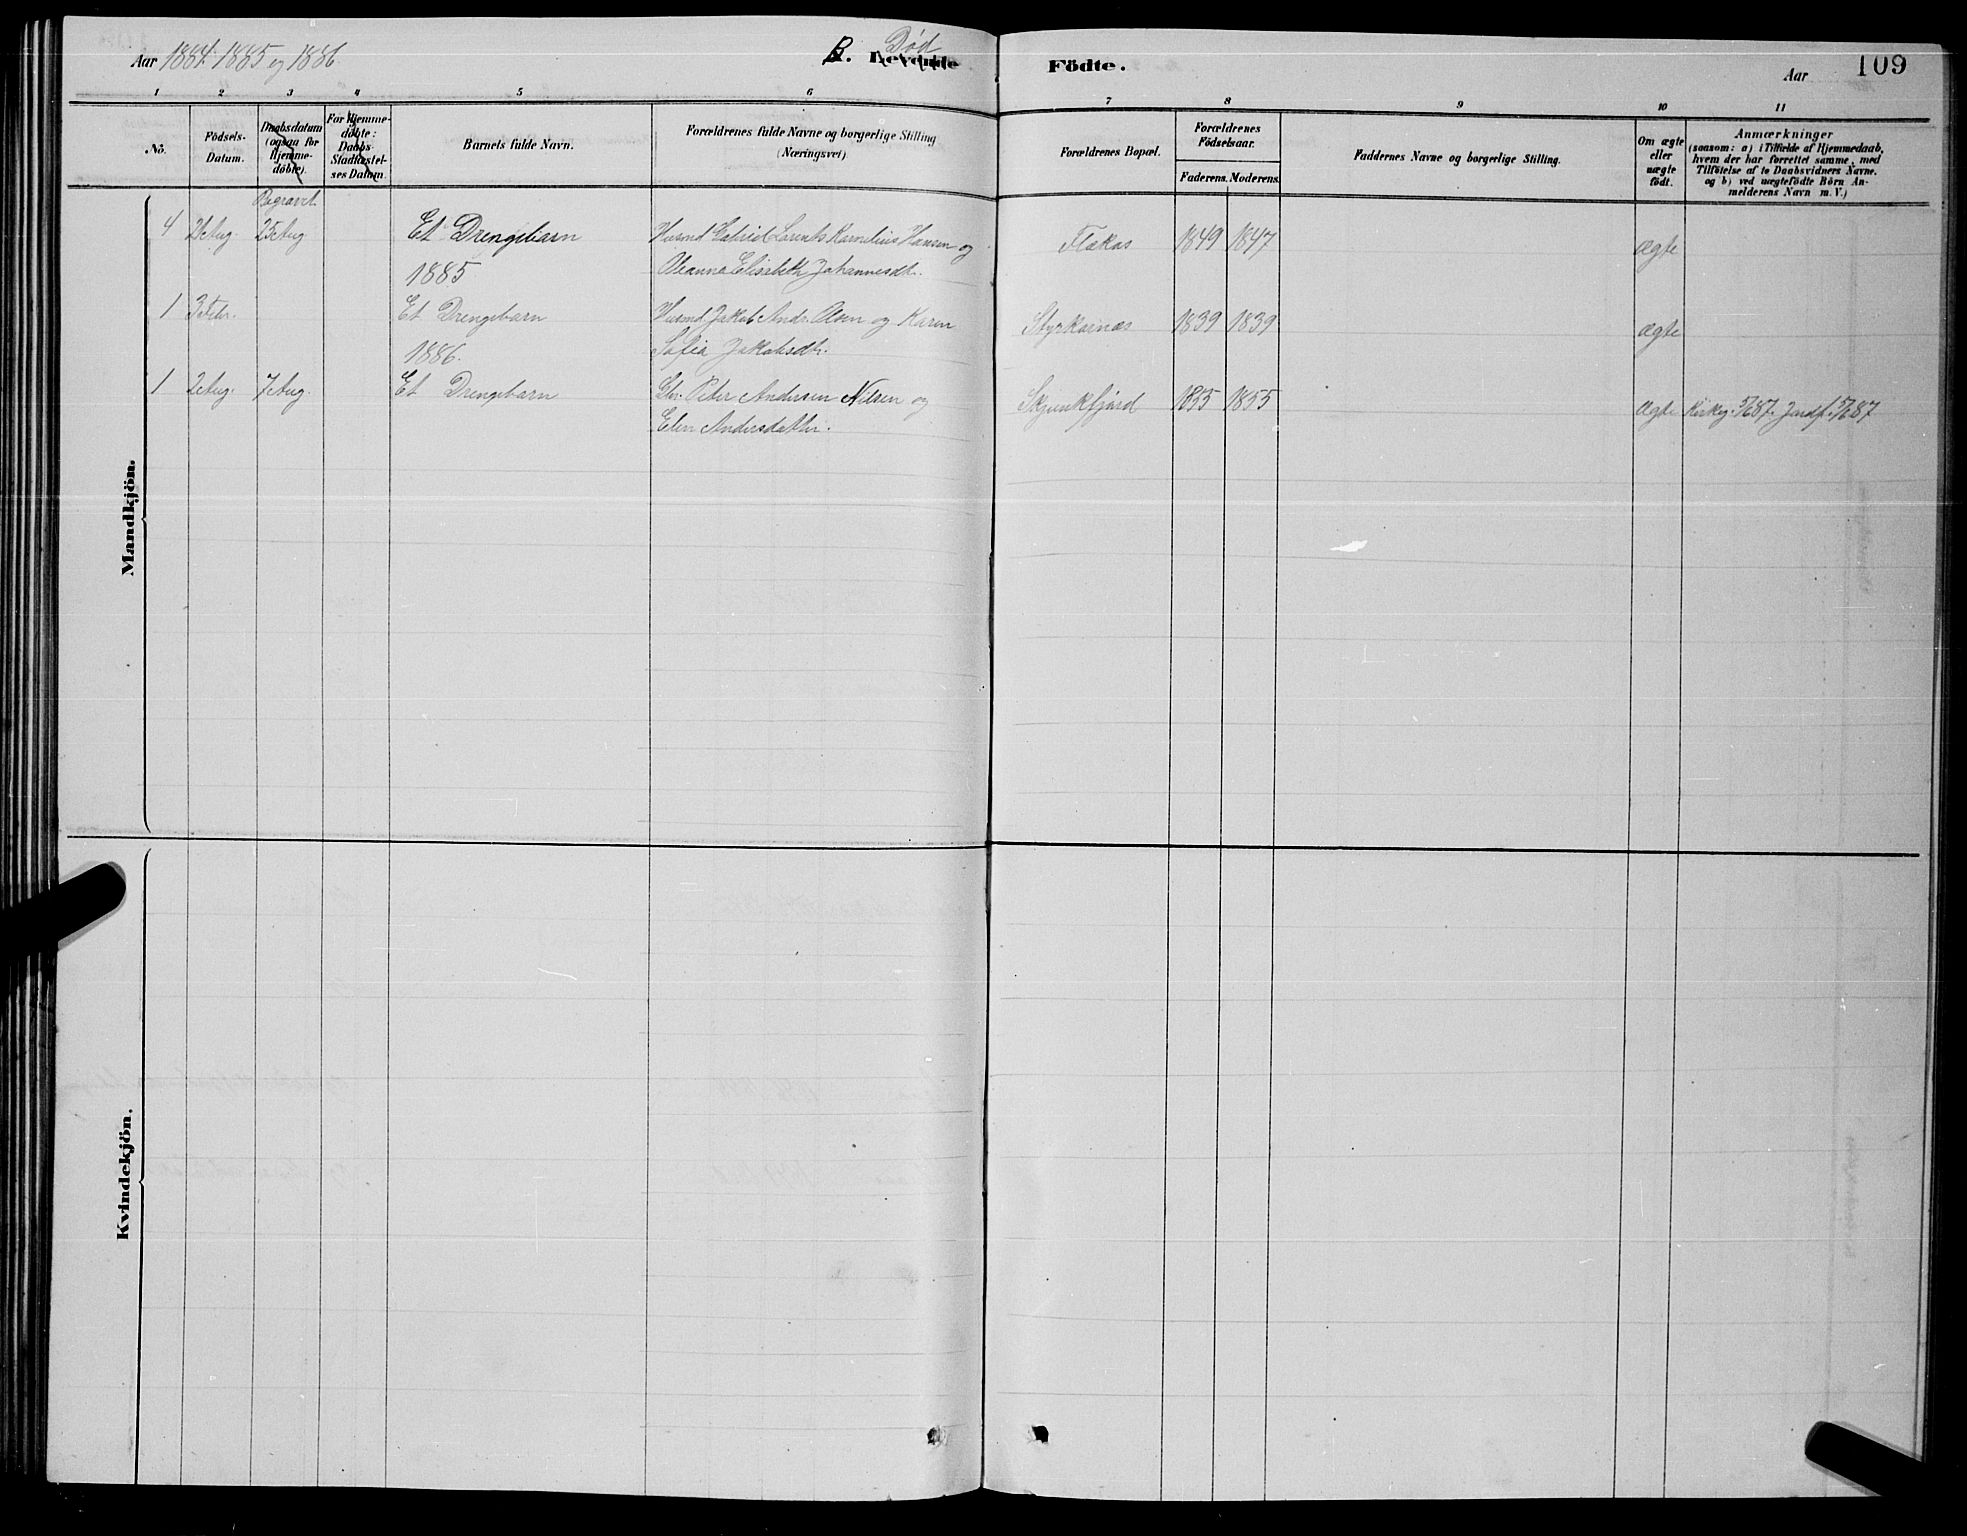 Aar 1884. 1885 og 1886.
B. Levende Död Födte.
Aar 109
1 2 3 4 5 6 7 8 9 10 11
No.
Födsels-Datum.
Daabsdatum (ogsaa for Hjemmedöbte).
For Hjemmedöbte: Daabs-Stadfæstelses Datum.
Barnets fulde Navn.
Forældrenes fulde Navne og borgerlige Stilling (Næringsvei)
Forældrenes Bopæl.
Forældrenes Födselsaar.
Faderens. Moderens.
Faddernes Navne og borgerlige Stilling.
Om ægte eller uægte födt.
Anmærkninger
(saasom: a) i Tilfælde af Hjemmedaab, hvem der har forrettet samme, med Tilföielse af to Daabsvidners Navne. og b) ved uægtefödte Börn Anmelderens Navn m. V.)
Begravet.
4 21 Aug. 25 Aug Et Drengebarn Husmd Gabriel Lorents Kornelius Hansen og Flakas 1849 1847 ægte
1885 Oleanna Elisabeth Johannesdt.
1 3 Febr. Et Drengebarn Husmd Jakob Andr. Olsen og Karen Styrkarnæs 1839 1839 ægte
1886. Sofia Jakobsdtr.
1 2 Aug. 7 Aug. Et Drengebarn Peter Andersen Nilsen og Skjunkfjord 1855 1855 ægte Kirkeg. 5/6 87. Jordf. 5/6 87
Elen Andersdatter.
Mandkjön.
Kvindekjön.